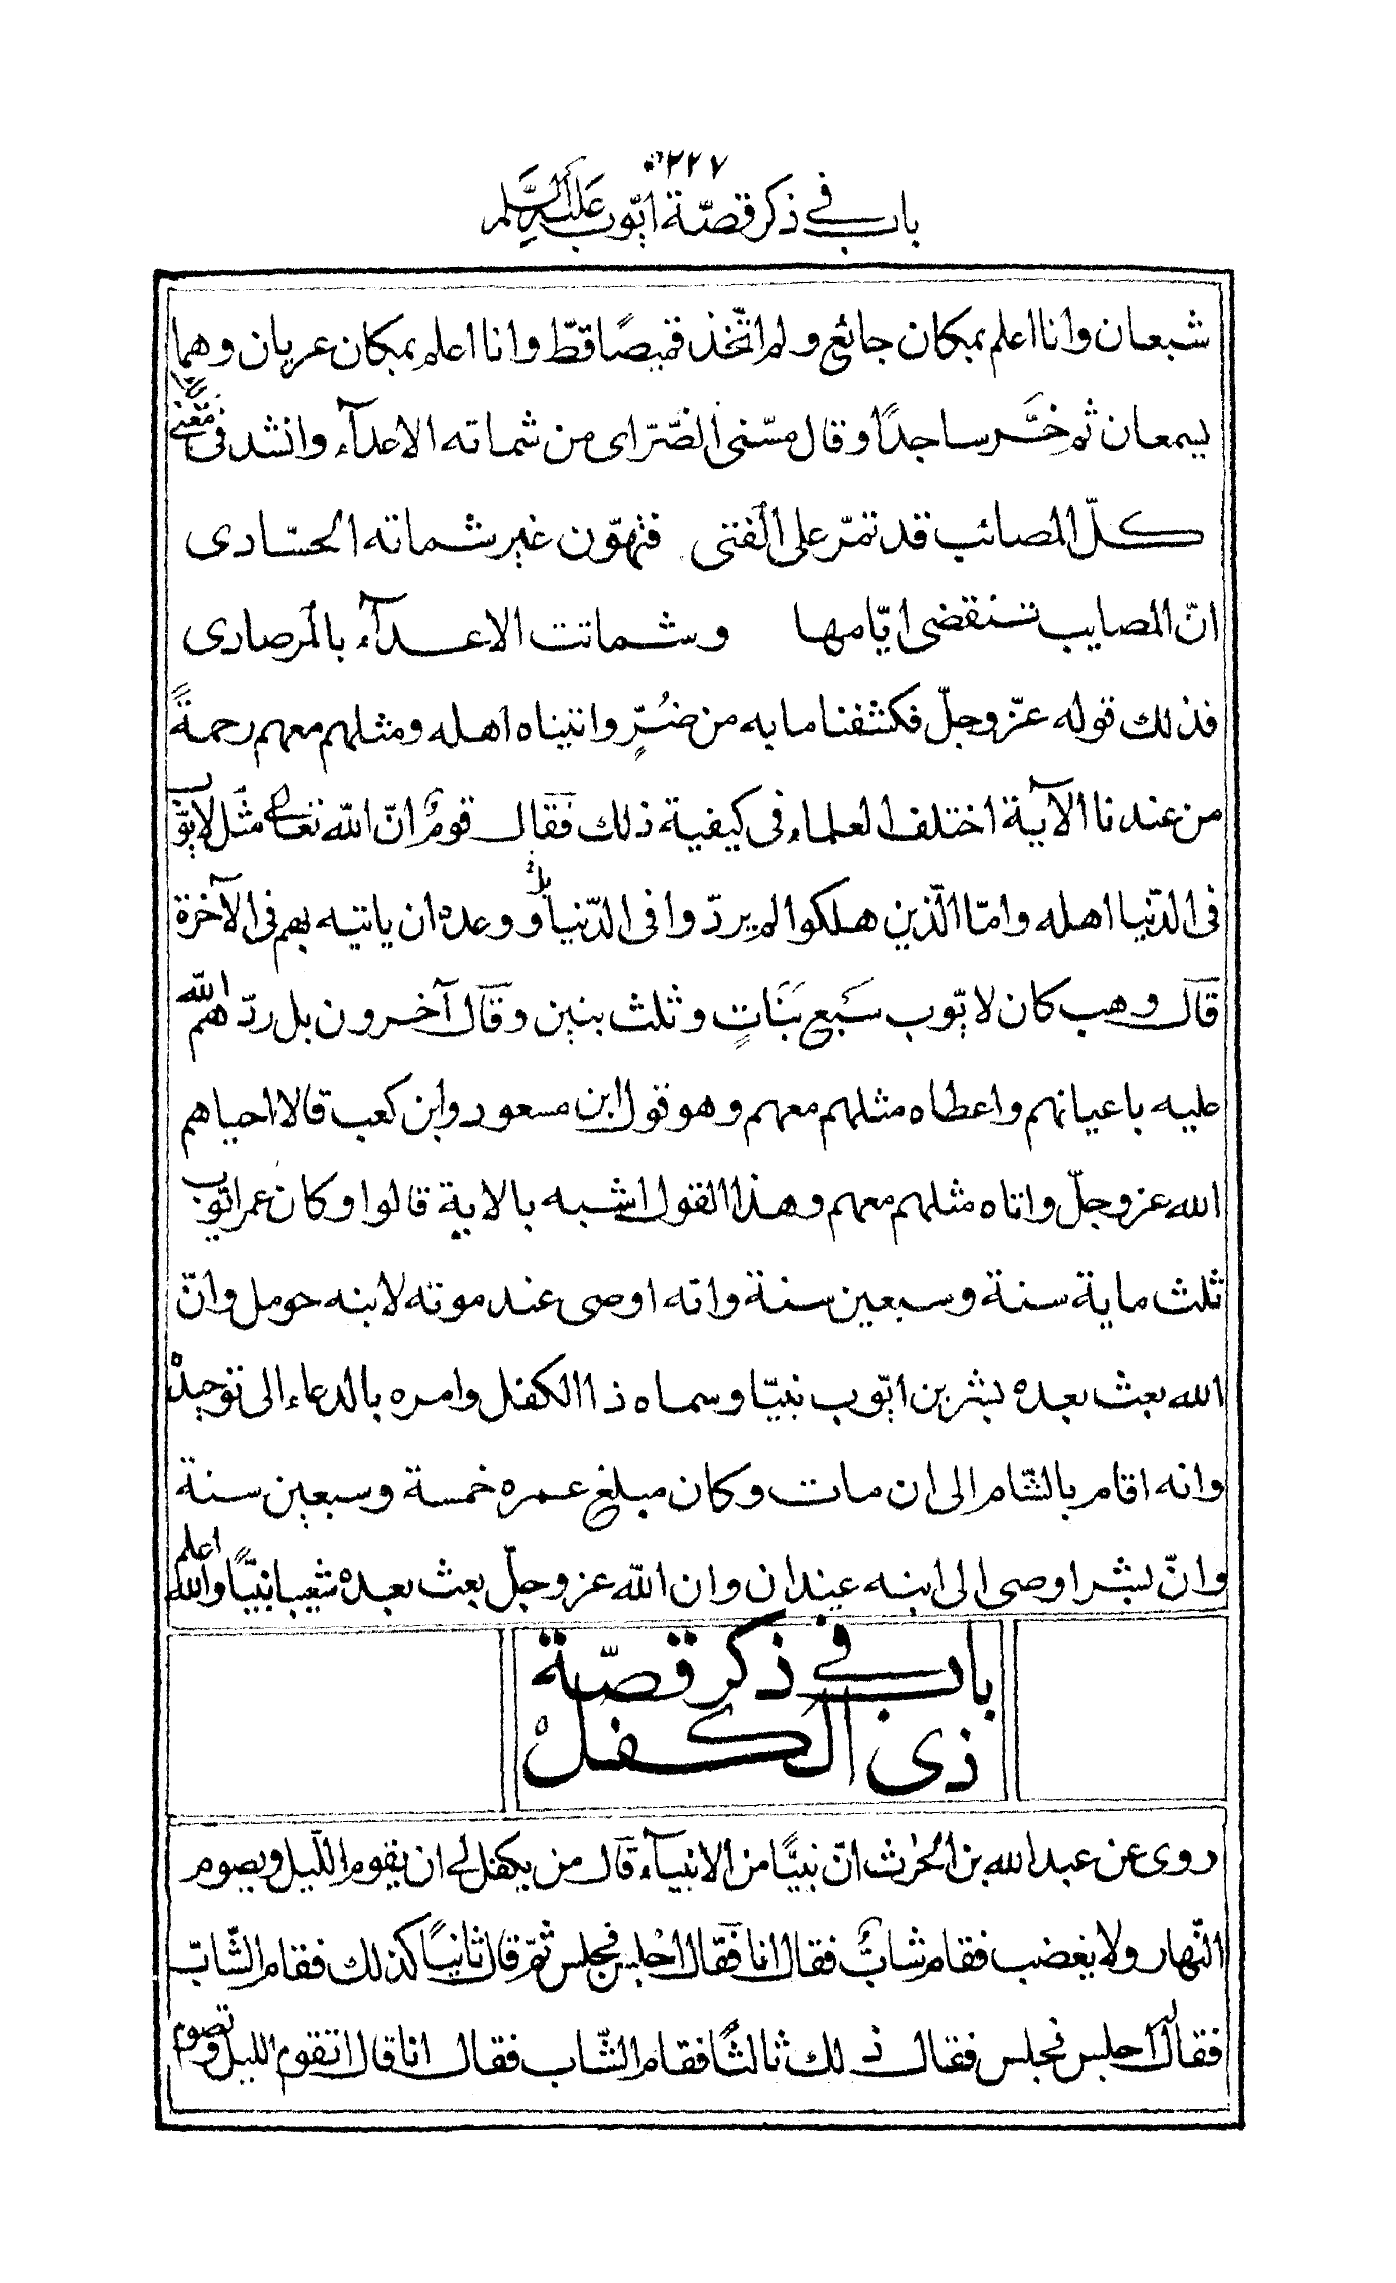 ٢٢٧
باب في ذكر قصّة ايّوب عليه السّلم
شبعان وانا اعلم بمكان جائع ولم اتّخذ قميصًا قطّ وانا اعلم بمكان عريان وهما
يسمعان ثم خَرَّ ساجدًا وقال مسّنى الضّرّ اى من شماته الاعدآء وانشد فى معنى
كلّ المصائب قد تمرّ على الفتى فتهوّن غير شماته الحسّادى
انّ المصايب تنقضى ايّامها وشماتت الاعدآء بالمرصادى
فذلك قوله عزّ وجلّ فكشفنا ما به من ضُرٍّ واتيناه اهله ومثلهم معهم رحمةً
من عندنا الآية اختلف العلماء فى كيفية ذلك فقال قومٌ انّ الله تعالى مثل لايّوب
فى الدّنيا اهله وامّا الّذين هلكوا لم يردّوا فى الدّنيا و وعده ان ياتيه بهم فى الآخرة
قال وهب كان لايّوب سَبع بَنَاتٍ وثلث بنين وقال آخرون بل ردّهم الله
عليه باعيانهم واعطاه مثلهم معهم وهو قول ابن مسعود وابن كعب قالا احياهم
الله عز وجلّ واتاه مثلهم معهم وهذا القول اشبه بالاية قالوا وكان عمر ايّوب
ثلث ماية سنة وسبعين سنة وانه اوصى عند موته لابنه حومل وانّ
الله بعث بعده بشر بن ايّوب نبيّا وسماه ذا الكفل وامره بالدعاء الى توحيده
وانه اقام بالشّام الى ان مات وكان مبلغ عمره خمسة وسبعين سنة
وانّ بشر اوصى الى ابنه عيندان وان الله عز وجلّ بعث بعده شعيبا نبيًّا والله اعلم
باب في ذكر قصّة
ذى الكفل
روى عن عبد الله بن الحٰرث انّ نبيًّا من الانبيآء قال من يكفل لى ان يقوم اللّيل ويصوم
النّهار ولا يغضب فقام شابٌّ فقال انا فقال اجْلس فجلس ثمّ قال ثانيًا كذلك فقام الشّابّ
فقال له اجلس فجلس فقال ذلك ثالثًا فقام الشّاب فقال انا قال اتقوم الليل وتصوم